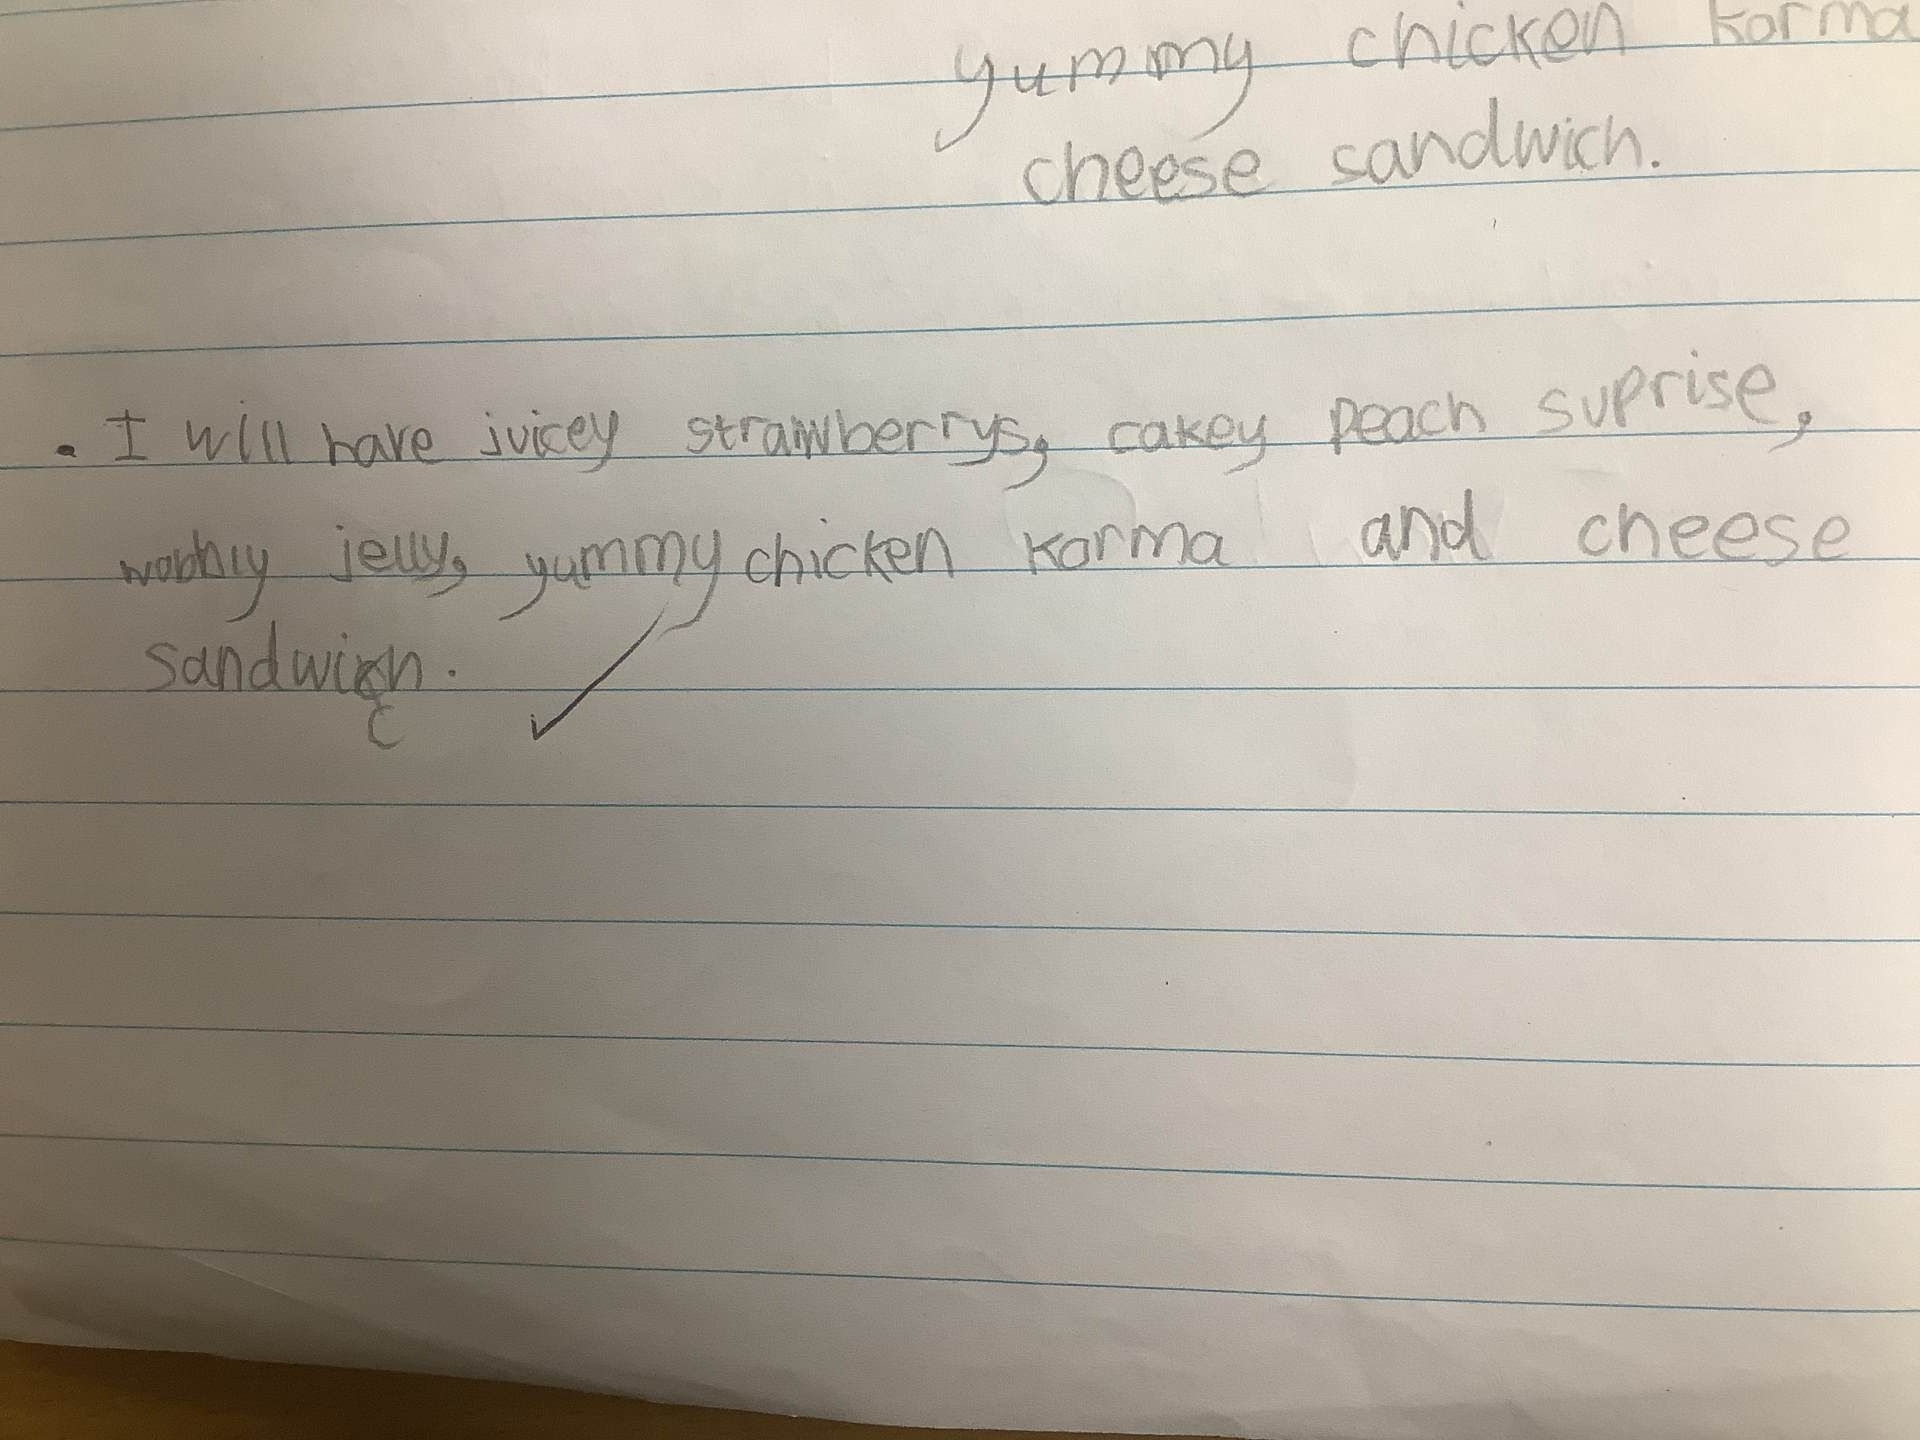 yummy chicken korma
cheese sandwich.
. I will have juicey strawberrys, cakey peach suprise,
wobbly jelly, yummy chicken korma and cheese
sandwich.
c